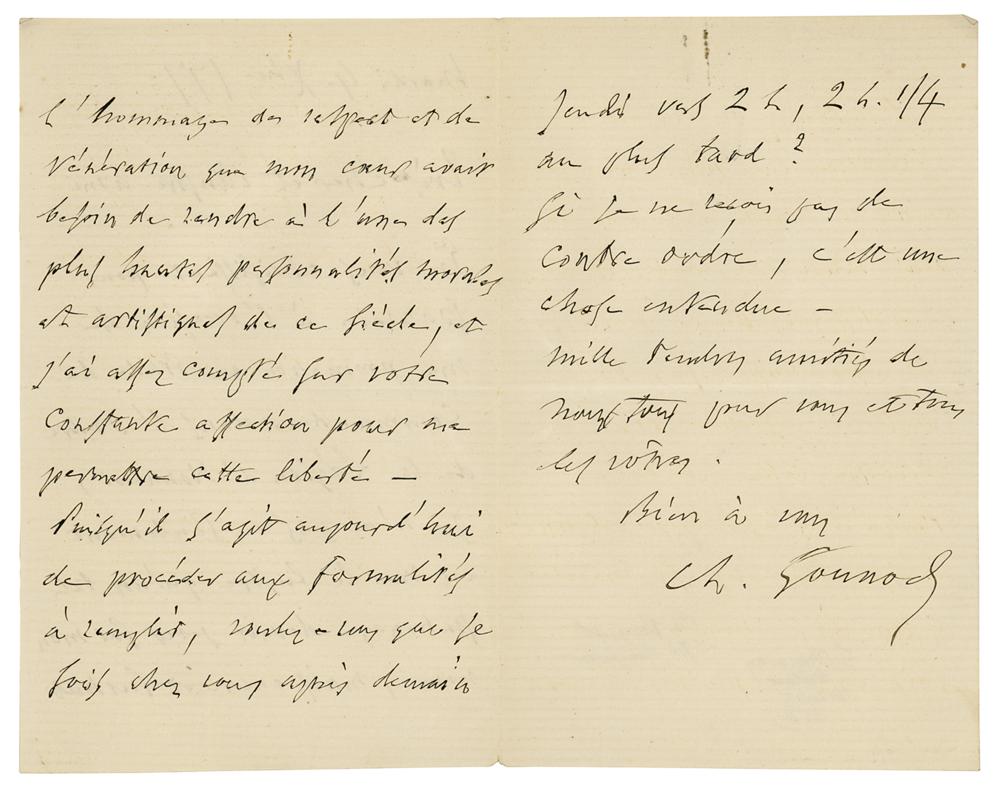 l'hommage de respect et de
vénération que mon cœur avait
besoin de rendre à l'une des
plus hautes personnalités morales
et artistiques de ce siècle, et
j'ai assez compté sur votre
constante affection pour me
permettre cette liberté –
Puisqu'il s'agit aujourd'hui
de procéder aux formalités
à remplir, voulez-vous que je
sois chez vous après demain
Jeudi vers 2 h, 2 h. 1/4
au plus tard ?
Si je ne reçois pas de
contre ordre, c'est une
chose entendue –
mille tendres amitiés de
nous tous pour vous et tous
les vôtres.
Bien à vous
Ch. Gounod